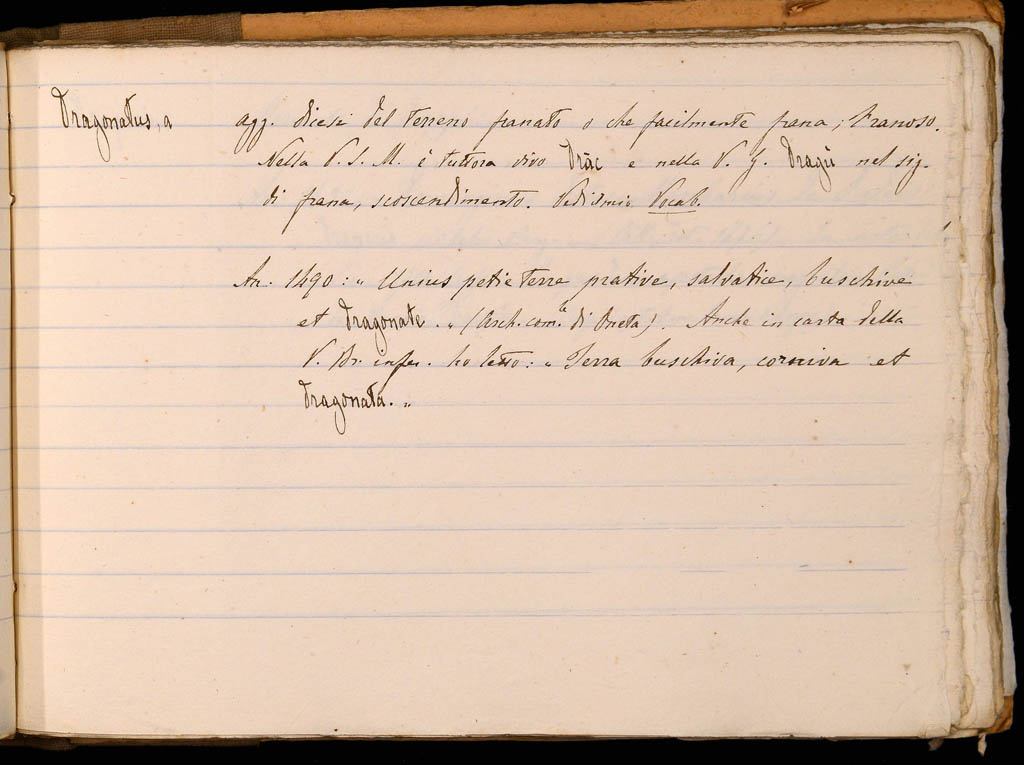 Dragonatus, a agg. dicesi del terreno franato o che facilmente frana; Franoso.
Nella V. S. M. è tuttora vivo Drāc e nella V. G. Dragù nel sig.
di frana, scoscendimento. Vedi il mio Vocab.
An. 1490: „ Unius petie terre prative, salvatice, buschive
et Dragonate. „ (Arch. com.e di Oneta). Anche in carta della
V. Br. infer. ho letto: „ Terra buschiva, corniva et
Dragonata. „